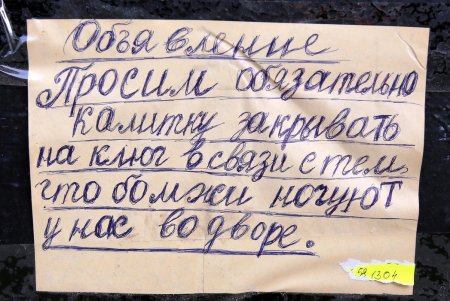 Объявление
Просим обязательно
калитку закрывать
на ключ в связи с тем,
что бомжи ночуют
у нас во дворе.